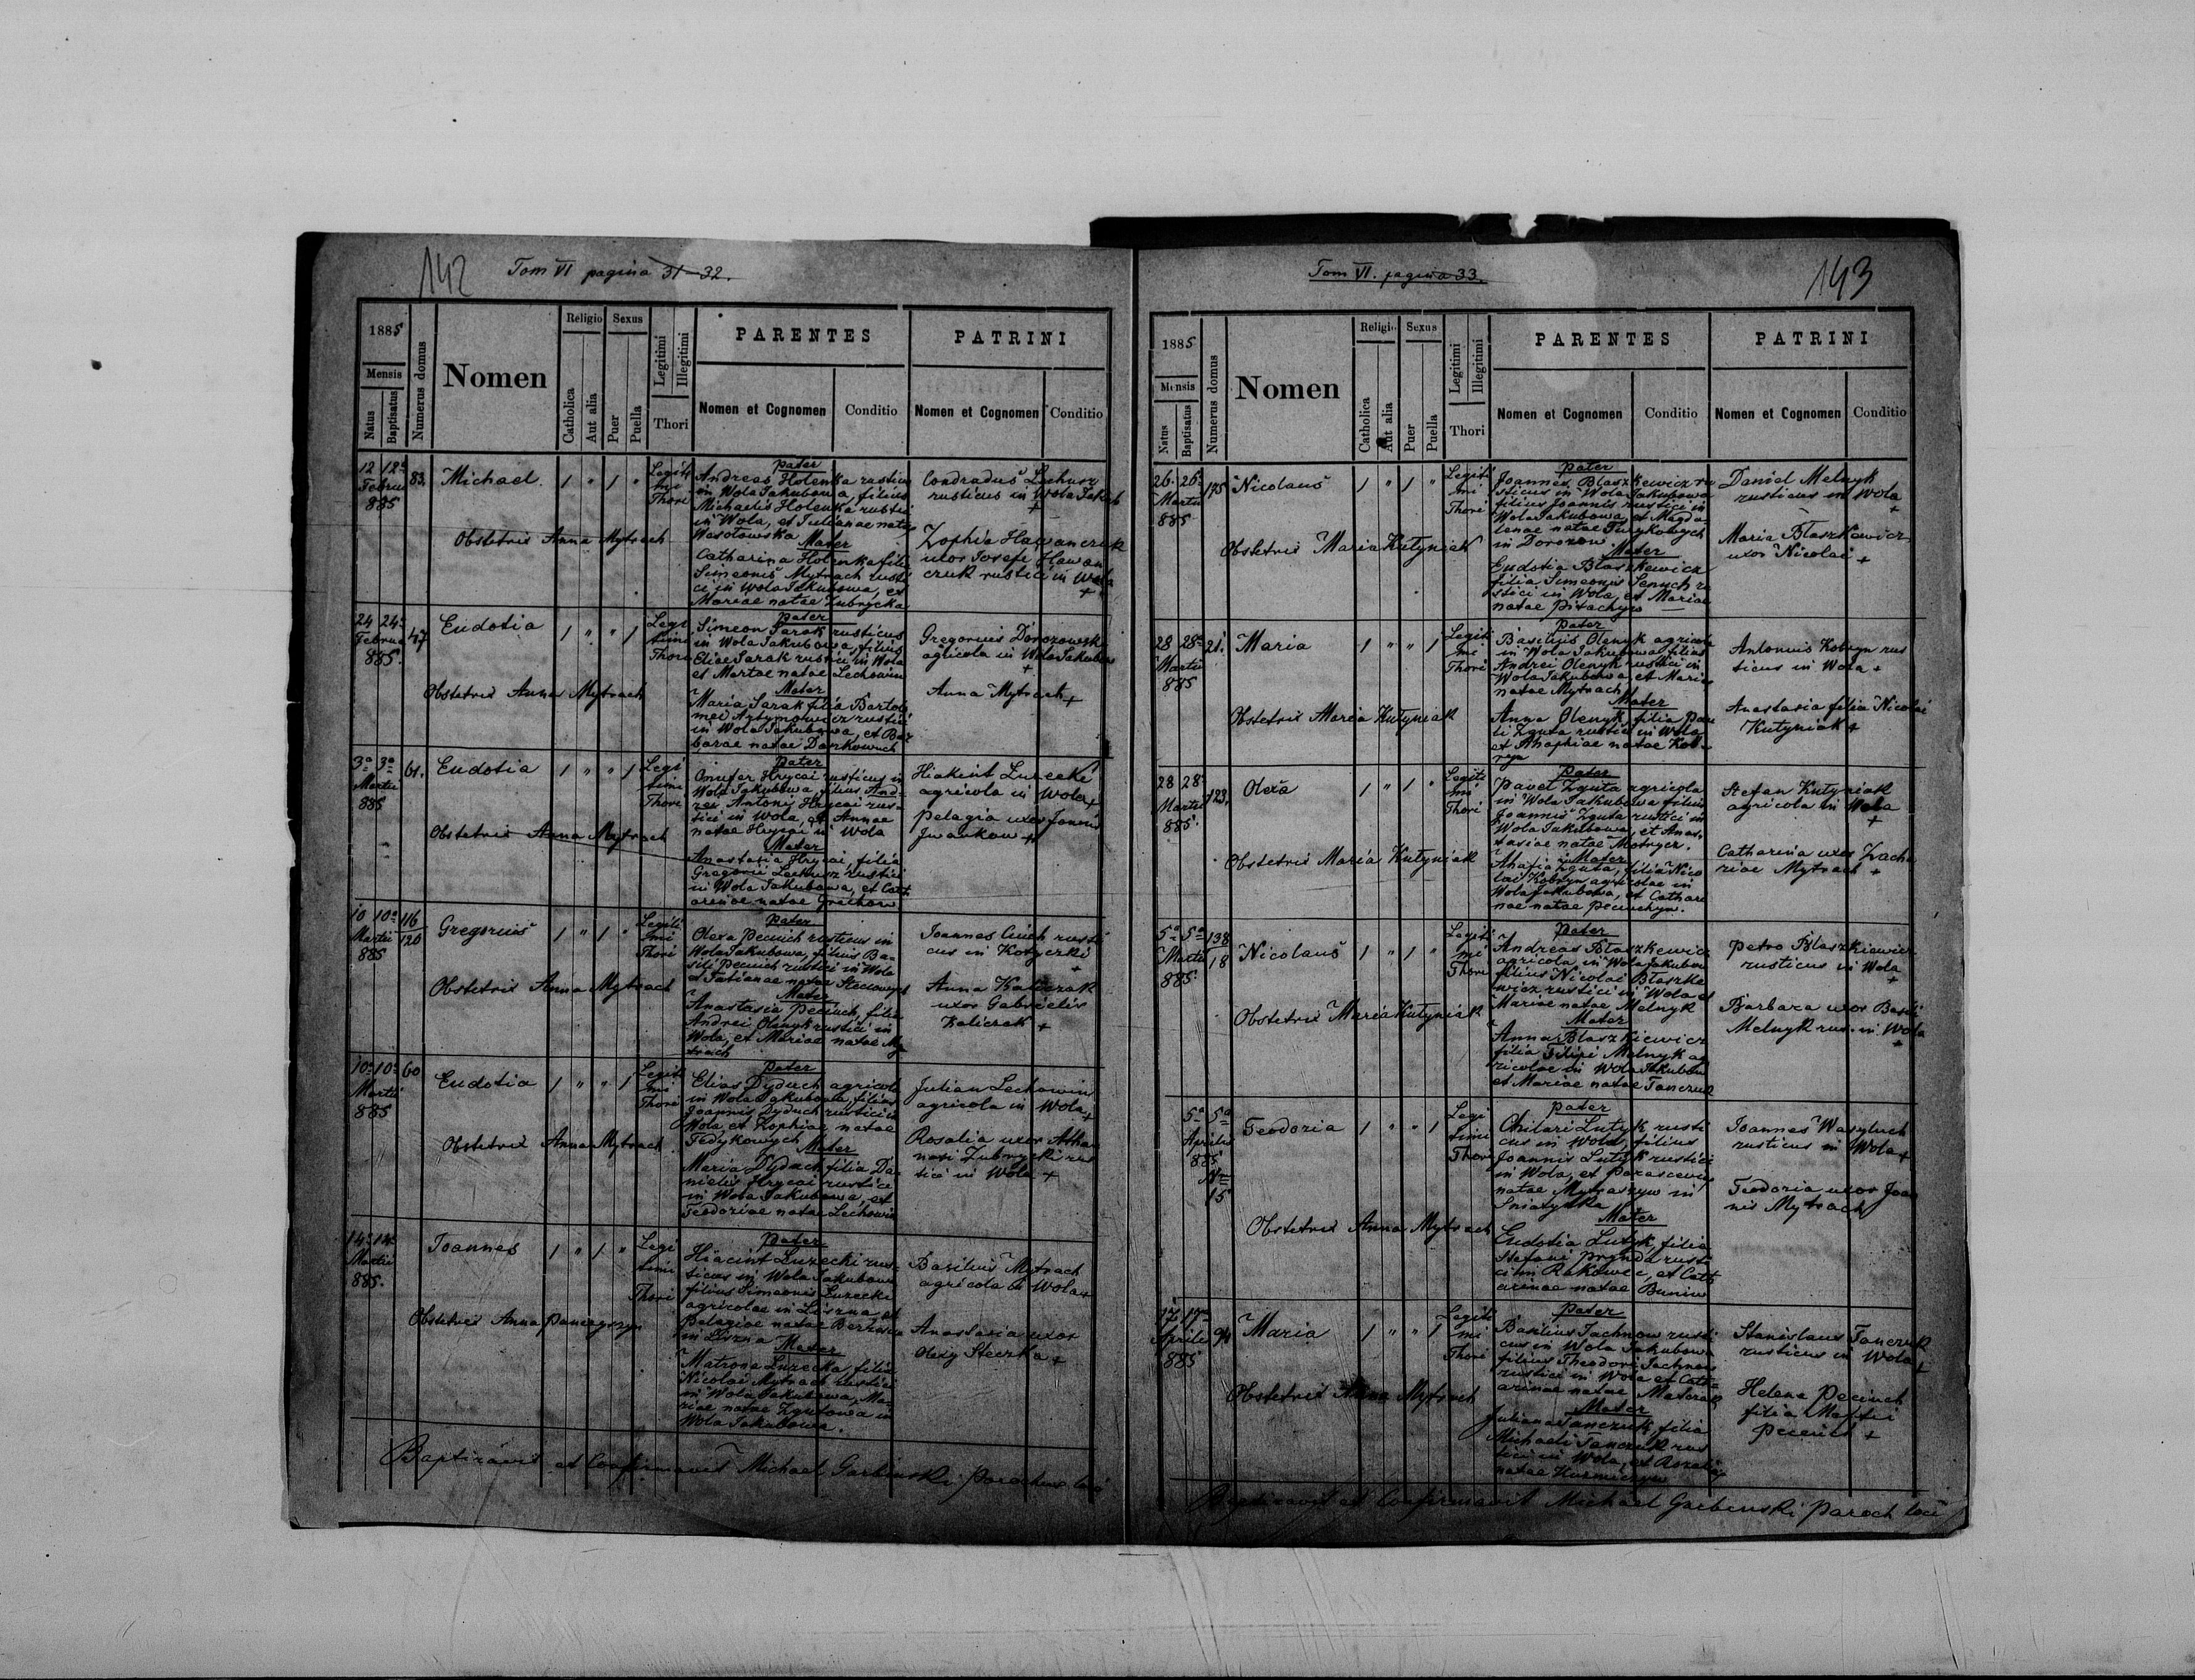 142
Tom VI pagina 31-32.
1885
Mensis
Natus
Baptisatus
Numerus domus
Nomen
Religio
Catholica
Aut alia
Sexus
Puer
Puella
Legitimi
Illegitimi
Thori
PARENTES
Nomen et Cognomen
Conditio
PATRINI
Nomen et Cognomen
Conditio
12 12a
Februa
885
83.
Michael.
1 " 1 "
Legiti
mi
Thori
Obstetrix Anna Mytrach
pater
Andreas Holenka rusticus
in Wola Jakubowa, filius
Michaelis Holenka rustici
in Wola, et Julianae natae
Wasołowska
Mater
Catharina Holenka filia
Simeonis Mytrach rusti
ci in Wola Jakubowa, et
Mariae natae Zubrycka
Condradus Lechusz
rusticus in Wola Jakub
+
Zophia Hawanczuk
uxor Josefi Hawan
czuk rustici in Wola
+
24 24a
Februa
885.
47
Eudotia
1 " " 1
Legi
timi
Thori
Obstetrix Anna Mytrach
pater
Simeon Sarak rusticus
in Wola Jakubowa, filius
Eliae Sarak rustici in Wola
et Martae natae Lechowin
Mater
Maria Sarak filia Bartolo
mei Antymowicz rustici
in Wola Jakubowa, et Bar
barae natae Dankowuch
Gregorius Dorozowsk
agricola in Wola Jakubow
+
Anna Mytrach +
3a 3a
Martii
885
61.
Eudotia
1 " " 1
Legi
timi
Thori
Obstetrix Anna Mytrach
pater
Onufer Hrycai rusticus in
Wola Jakubowa, filius And-
rei Antonii Hrycai rus-
tici in Wola, et Annae
natae Hrycai in Wola
Mater
Anastasia Hrycai, filia
Gregorii Lechusz rustici
in Wola Jakubowa, et Cath
arinae natae Greckow
Hiakint Luzecki
agricola in Wola +
Pelagia uxor Joannis
Iwankow +
10 10a
Martii
885
116
120
Gregorius
1 " 1 "
Legiti
mi
Thori
Obstetrix Anna Mytrach
pater
Olexa Peciuch rusticus in
Wola Jakubowa, filius Ba-
sili Peciuch rustici in Wola
et Tatianae natae Steciowych
Mater
Anastasia Peciuch, filia
Andrei Olenyk rustici in
Wola, et Mariae natae My
trach
Joannes Ciuch rusti
cus in Kotyczki
+
Anna Kaliczak
uxor Gabrielis
Kaliczak +
10a 10a
Martii
885
60
Eudotia
1 " " 1
Legiti
mi
Thori
Obstetrix Anna Mytrach
pater
Elias Dyduch agricola
in Wola Jakubowa, filius
Joannis Dyduch rustici in
Wola, et Zophiae natae
Fedykowych
Mater
Maria Dyduch filia Da-
nielis Hrycai rustici
in Wola Jakubowa, et
Teodoriae natae Lechowin
Julian Lechowin
agricola in Wola +
Rosalia uxor Atha
nasi Zubrycki rus
tici in Wola +
14a 14a
Martii
885.
Joannes
1 " 1 "
Legi
timi
Thori
Obstetrix Anna
pater
Hiacint Luzecki rus-
ticus in Wola Jakubowa
filius Simeonis Luzecki
agricolae in Liszna et
Pelagiae natae
in Liszna
Mater
Matrona Luzecka, filia
Nicolai Mytrach rustici
in Wola Jakubowa, Ma-
riae natae Zgutowa in
Wola Jakubowa.
Basilius Mytrach
agricola in Wola +
Anastasia uxor
Olexy Steczka +
Baptizavit et Confirmavit Michael Garbinski parochus loci
143
Tom VI. pagina 33.
1885
Mensis
Natus
Baptisatus
Numerus domus
Nomen
Religio
Catholica
Aut alia
Sexus
Puer
Puella
Legitimi
Illegitimi
Thori
PARENTES
Nomen et Cognomen
Conditio
PATRINI
Nomen et Cognomen
Conditio
26. 26a
Martii
885
175
Nicolaus
1 " 1 "
Legiti
mi
Thori
Obstetrix Maria Kutyniak
pater
Joannes Błaszkewicz ru
sticus in Wola Jakubowa
filius Joannis rustici in
Wola Jakubowa, et Magda
lenae natae Furykowych
in Dorozow
Mater
Eudotia Błaszkewicz
filia Simeonis Senych ru
stici in Wola, et Mariae
natae Pitachyn
Daniel Melnyk
rusticus in Wola
+
Maria Błaszkewicz
uxor Nicolai +
28 28a
Martii
885
21.
Maria
1 " " 1
Legiti
mi
Thori
Obstetrix Maria Kutyniak
pater
Basilius Olenyk agricola
in Wola Jakubowa filius
Andrei Olenyk rustici in
Wola Jakubowa, et Mariae
natae Mytrach
Mater
Anna Olenyk, filia Pau
li Zguta rustici in Wola
et Ahaphiae natae Kob-
ryn
Antonius Kobryn rus
ticus in Wola +
Anastasia filia Nicolai
Kutyniak +
28 28a
Martii
885.
123.
Olexa
1 " 1 "
Legiti
mi
Thori
Obstetrix Maria Kutyniak
pater
Paveł Zguta agricola
in Wola Jakubowa filius
Joannis Zguta rustici in
Wola Jakubowa, et Anas-
tasiae natae Motrycz.
Mater
Ahafia Zguta, filia Nico
lai Kobryn agricolae in
Wola Jakubowa, et Cathari
nae natae Peciuchyn.
Stefan Kutyniak
agricola in Wola
+
Catharina uxor Zacha
riae Mytrach +
5a 5a
Martii
885.
138
18
Nicolaus
1 " 1 "
Legiti
mi
Thori
Obstetrix Maria Kutyniak
pater
Andreas Błaszkewicz
agricola in Wola Jakubow
filius Nicolai Błaszke
wicz rustici in Wola et
Mariae natae Melnyk
Mater
Anna Błaszkiewicz
filia Filipi Melnyk ag
ricolae in Wola Jakubow
et Mariae natae Tanczuk
Petro Błaszkiewicz
rusticus in Wola
+
Barbara uxor Basili
Melnyk rus. in Wola
+
5a 5a
Aprilis
885
Nr
15
Teodoria
1 " " 1
Legi
timi
Thori
Obstetrix Anna Mytrach
pater
Chilari Lutyk rusti
cus in Wola, filius
Joannis Lutyk rustici
in Wola, et Parascewia
natae Mytraszyn in
Sniatynka
Mater
Eudotia Lutyk, filia
Stefani Prynda rusti
ci in Rakowec, et Cath
arinae natae Buniw
Joannes Wasyluch
rusticus in Wola +
Teodoria uxor Joan
nis Mytrach
17 17a
Aprilis
885
94
Maria
1 " " 1
Legiti
mi
Thori
Obstetrix Anna Mytrach
pater
Basilius Jachnow rusti
cus in Wola Jakubowa
filius Theodori Jachnow
rustici in Wola et Cath-
arinae natae
Mater
Juliana Tanczuk, filia
Michaeli Tanczuk rus
tici in Wola, et Rozalia
natae Kuzmiczyn
Stanislaus Tanczuk
rusticus in Wola
+
Helena Peciuch
filia
Peciuch +
Baptizavit et Confirmavit Michael Garbinski Paroch loci